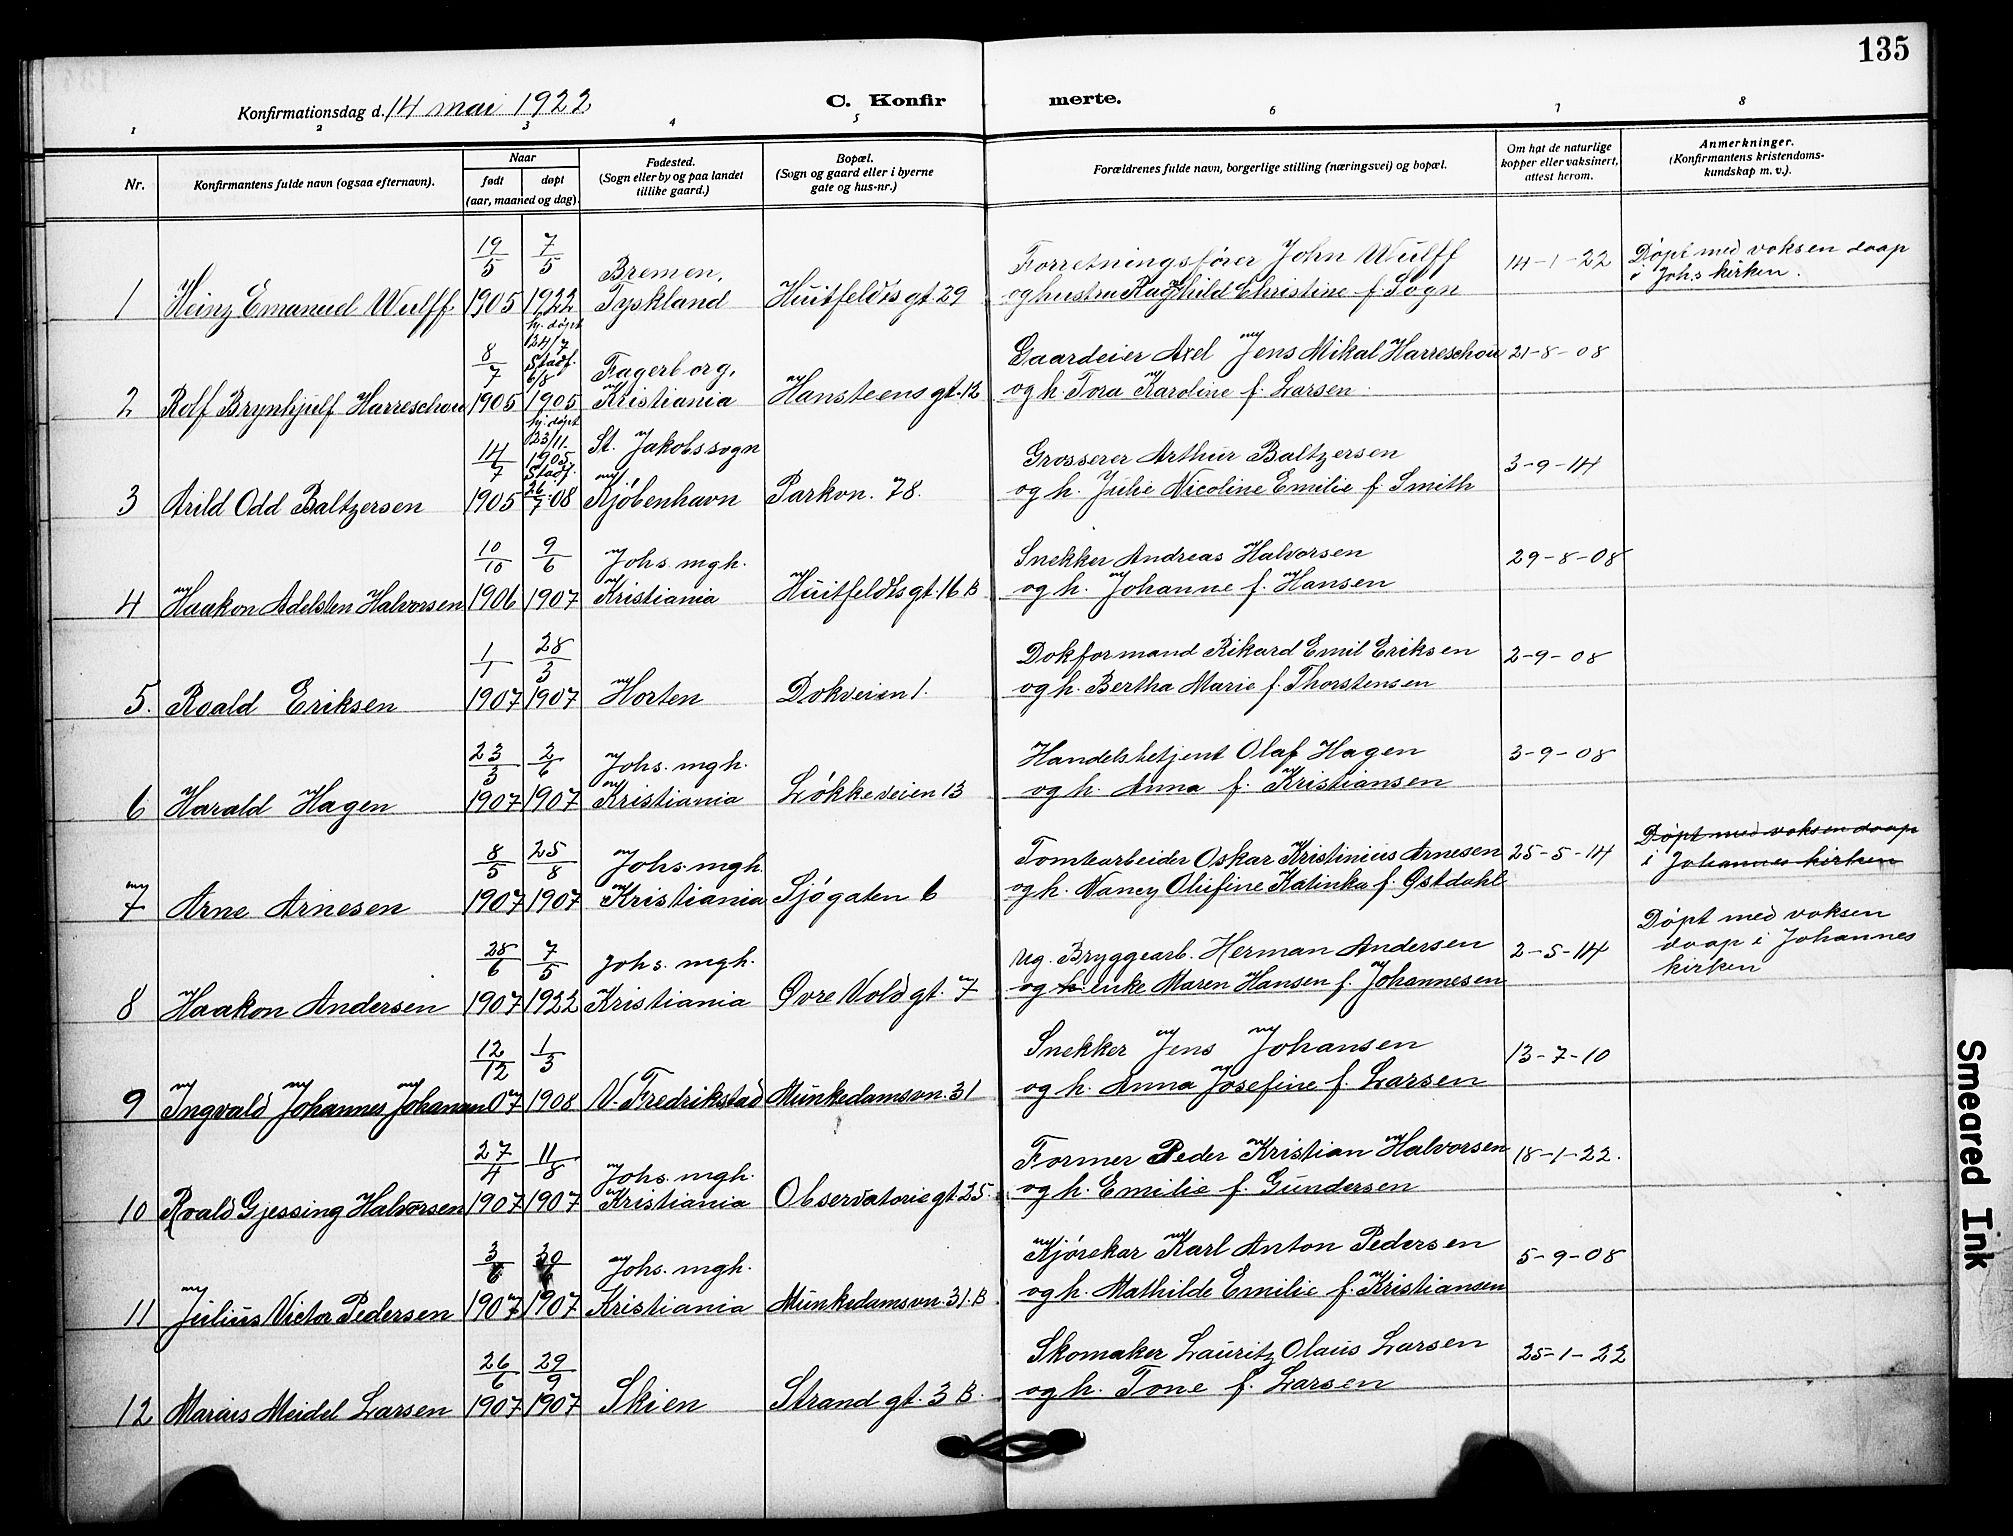 135
Konfirmationsdag d. 14 mai 1922
C. Konfirmerte.
1 2 3 4 5 6 7 8
Nr.
Konfirmantens fulde navn (ogsaa efternavn).
Naar
født døpt
(aar, maaned og dag).
Fødested.
(Sogn eller by og paa landet
tillike gaard.)
Bopæl.
(Sogn og gaard eller i byerne
gate og hus-nr.)
Forældrenes fulde navn, borgerlige stilling (næringsvei) og bopæl.
Om hat de naturlige
kopper eller vaksinert,
attest herom.
Anmerkninger.
(Konfirmantens kristendoms-
kundskap m. v.).
1 Heinz Emanuel Wulff
19/5 1905
7/5 1922
Bremen,
Tyskland
Huitfeldts gt. 29
Forretningsfører John Wulff
og hustru Ragnhild Christine f. Sogn
14-1-22
Døpt med voksen daap
i Johs kirken.
2 Rolf Brynhjulf Harreschou
8/7 1905
hj. døpt
24/7
Stadf.
6/8
1905
Fagerborg,
Kristiania
Hansteens gt. 12
Gaardeier Axel Jens Mikal Harreschou
og h. Tora Karoline f. Larsen
21-8-08
3 Arild Odd Baltzersen
14/7 1905
hj. døpt
23/11
1905
Stadf.
26/7 08
St. Jakobs sogn
Kjøbenhavn
Parkvn. 78.
Grosserer Arthur Baltzersen
og h. Julie Nicoline Emilie f. Smith
3-9-14
4 Haakon Adelsten Halvorsen
10/10 1906
9/6 1907
Johs. mgh.
Kristiania
Huitfeldts gt. 16 B
Snekker Andreas Halvorsen
og h. Johanne f. Hansen
29-8-08
5. Roald Eriksen
1/1 1907
28/3 1907
Horten
Dokveien 1.
Dokformand Rikard Emil Eriksen
og h. Bertha Marie f. Thorstensen
2-9-08
6 Harald Hagen
23/3 1907
2/6 1907
Johs. mgh.
Kristiania
Løkkeveien 13
Handelsbetjent Olaf Hagen
og h. Anna f. Kristiansen
3-9-08
7 Arne Arnesen
8/5 1907
25/8 1907
Johs. mgh.
Kristiania
Sjøgaten 6
Tomtearbeider Oskar Kristinius Arnesen
og h. Nancy Olufine Katinka f. Østdahl
25-5-14
Døpt med voksen daap
i Johannes kirken
8 Haakon Andersen
28/6 1907
7/5 1922
Johs. mgh.
Kristiania
Øvre Vold gt. 7
Ug. Bryggearb. Herman Andersen
og h. enke Maren Hansen f. Johannesen
2-5-14
Døpt med voksen
daap i Johannes
kirken
9 Ingvald Johannes Johansen
12/12 07
1/3 1908
V. Fredrikstad
Munkedamsvn. 31
Snekker Jens Johansen
og h. Anna Josefine f. Larsen
13-7-10
10 Roald Gjessing Halvorsen
27/4 1907
11/8 1907
Johs. mgh.
Kristiania
Observatorie gt. 25.
Former Peder Kristian Halvorsen
og h. Emilie f. Gundersen
18-1-22.
11 Julius Victor Pedersen
3/6 1907
30/ 1907
Johs. mgh.
Kristiania
Munkedamsvn. 31. B
Kjørekar Karl Anton Pedersen
og h. Mathilde Emilie f. Kristiansen
5-9-08
12 Meidel Larsen
26/6 1907
29/9 1907
Skien
Strand gt. 3 B.
Skomaker Lauritz Olaus Larsen
og h. Tone f. Larsen
25-1-22
Smeared Ink